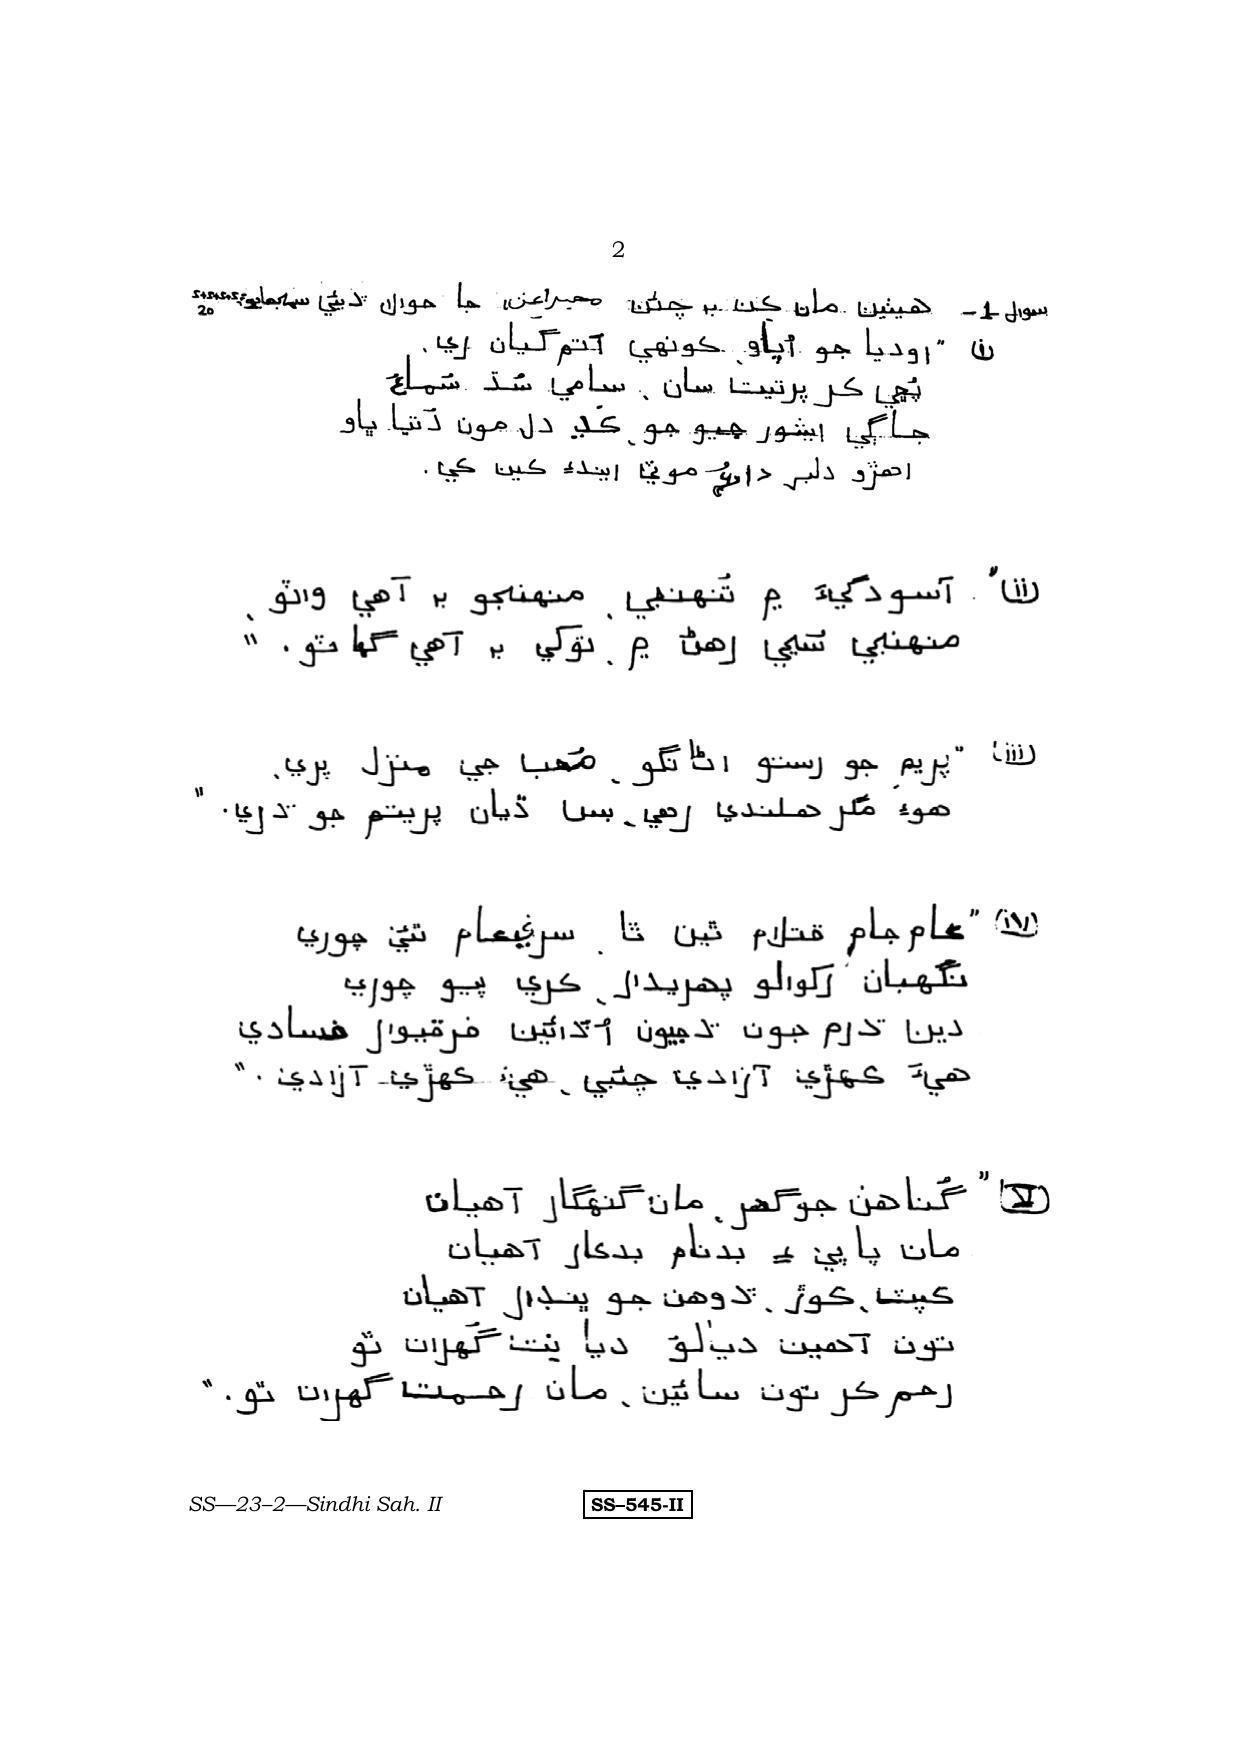 2
سوال 1- هيٺين مان ڪن بہ چئن جا حوال ڏيئي سمجهايو: 5+5+5+5
20
(i) "اوديا جو اُپاو، ڪونهي آتم گيان ري.
پڇي ڪر پرتيت سان، سامي سُڌ سُماءُ
جاڳي ايشور جيو جو، ڪڍ دل مون دُنتيا ڀاو
اهڙو دلبر موٽي ايندء ڪين ڪي.
(ii) "آسودگيءَ ۾ تُنهنجي، منهنجو بہ آهي وارو،
منهنجي سُڃي رهڻ ۾، توکي بہ آهي گهاٽو. "
(iii) "پريم جو رستو اڻانگو، مُحب جي منزل پري،
هوءَ مگر هلندي رهي، بس ڌيان پريتم جو ڌري. "
(iv) "عام جام قتلام ٿين ٿا، سرِيعام ٿئي چوري
نگهبان رکوالو پهريدار، ڪري پيو چوري
دين ڌرم جون ڌجيون اُڏائين فرقيوار فسادي
هيءَ ڪهڙي آزادي چئبي، هيءَ ڪهڙي آزادي. "
(v) "گُناهن جو گهر، مان گنهگار آهيان
مان پاپي ۽ بدنام بدڪار آهيان
ڪپت، ڪوڙ، ڏوهن جو ڀنڊار آهيان
تون آهين ديالو ديا ڀت گهُران ٿو
رحم ڪر تون سائين، مان رحمت گهران ٿو. "
SS—23–2—Sindhi Sah. II
SS–545-II